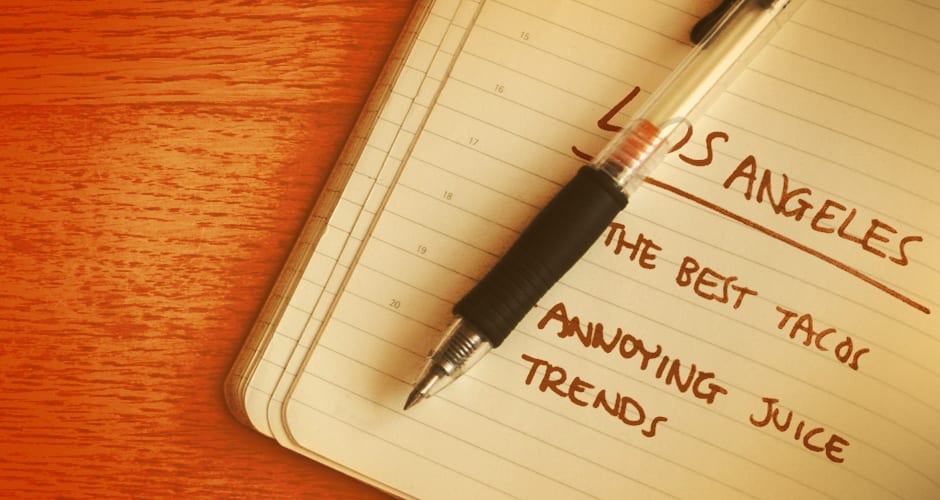 15
16
17
18
19
20
LOS ANGELES
THE BEST TACOS
ANNOYING JUICE
TRENDS